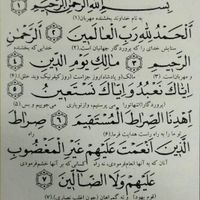 بِسْمِ اللَّهِ الرَّحْمَٰنِ الرَّحِيمِ ﴿۱﴾
به نام خداوند بخشنده مهربان(۱)
اَلْحَمْدُ لِلَّهِ رَبِّ الْعَالَمِينَ ﴿۲﴾ اَلرَّحْمَٰنِ
ستایش خدای را که پروردگار جهانیان است(۲) که بخشنده
الرَّحِيمِ ﴿۳﴾ مَالِكِ يَوْمِ الدِّينِ ﴿۴﴾
و مهربان است(۳)
إِيَّاكَ نَعْبُدُ وَإِيَّاكَ نَسْتَعِينُ ﴿۵﴾
(پروردگارا) می پرستیم و از تو یاری می جوییم و بس(۵)
اِهْدِنَا الصِّرَاطَ الْمُسْتَقِيمَ ﴿۶﴾ صِرَاطَ
تو ما را به راه راست هدایت فرما(۶) راه
الَّذِينَ أَنْعَمْتَ عَلَيْهِمْ غَيْرِ الْمَغْضُوبِ
آنان که به آنها انعام فرمودی، نه راه کسانی که بر آنها خشم فرمودی
عَلَيْهِمْ وَلَا الضَّالِّينَ ﴿۷﴾
و نه گمراهان (چون اغلب نصاری)(۷)